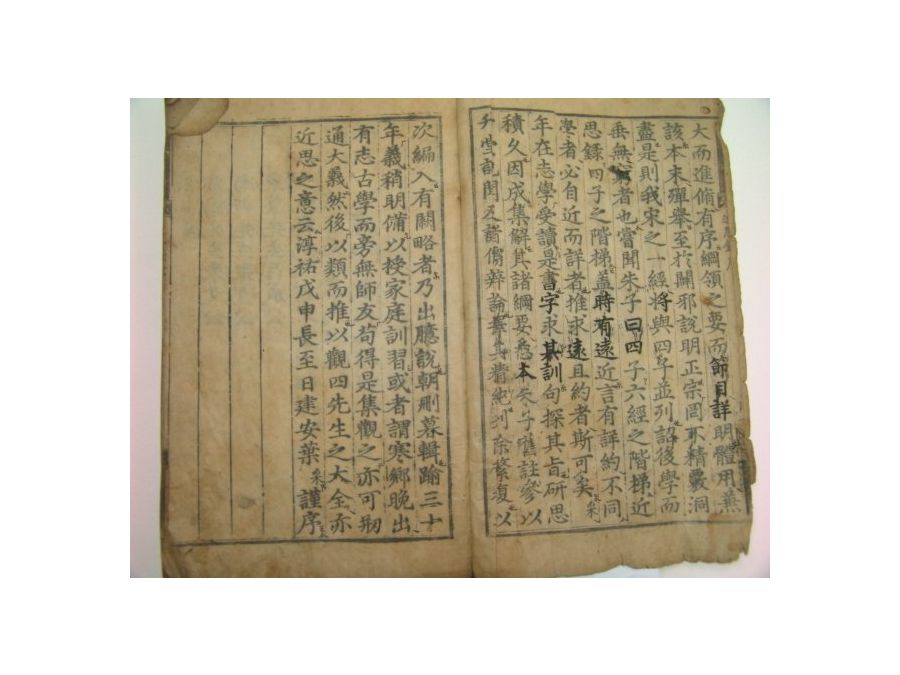 大而進脩有序綱領之要而節目詳明體用兼
該本末殫舉至於闢邪說明正宗罔不精覈洞
盡是則我宋之一經將與四子並列詔後學而
垂無窮者也嘗聞朱子曰四子六經之階梯近
思録四子之階梯盖時有遠近言有詳約不同
學者必自近而詳者推求遠且約者斯可矣采
年在志學受讀是書字求其訓句探其旨研思
積久因成集解其諸綱要悉本朱子舊註參以
升堂記聞及諸儒辯論擇其精純刋除繁復以
次編入有闕略者乃出臆說朝刪暮輯踰三十
年義稍明備以授家庭訓習或者謂寒鄉晚出
有志古學而旁無師友苟得是集觀之亦可刱
通大義然後以類而推以觀四先生之大全亦
近思之意云淳祐戊申長至日建安葉采謹序